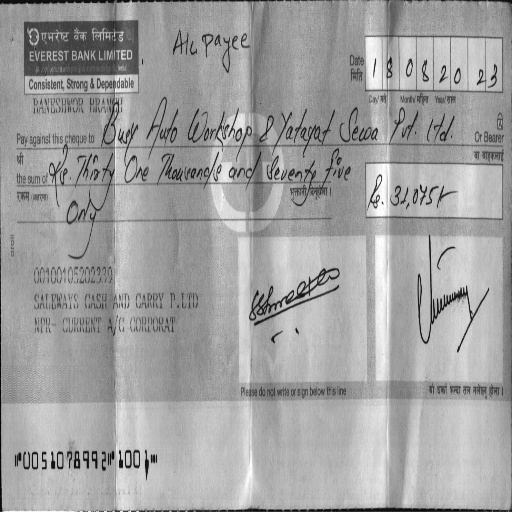 एभरेष्ट बैंक लिमिटेड
EVEREST BANK LIMITED
Consistent, Strong & Dependable
A/c payee
Date
मिति
1 8 0 8 20 23
Day/ गते Month/ महिना Year/ साल
BANESHWOR BRANCH
Pay against this cheque to Busy Auto Workshop & Yatayat Sewa Pvt. Ltd. Or Bearer
श्री वा वाहकलाई
the sum of Rs. Thirty One Thousands and Seventy five
रूपैयाँ (अक्षरमा) भुक्तानी दिनुहोला ।
Only
Rs. 31,075/-
00100105202339
SALEWAYS CASH AND CARRY P.LTD
NPR- CURRENT A/C CORPORAT
Please do not write or sign below this line
यो रेखा भन्दा तल नलेख्नु होला ।
⑈00510789921⑈1001